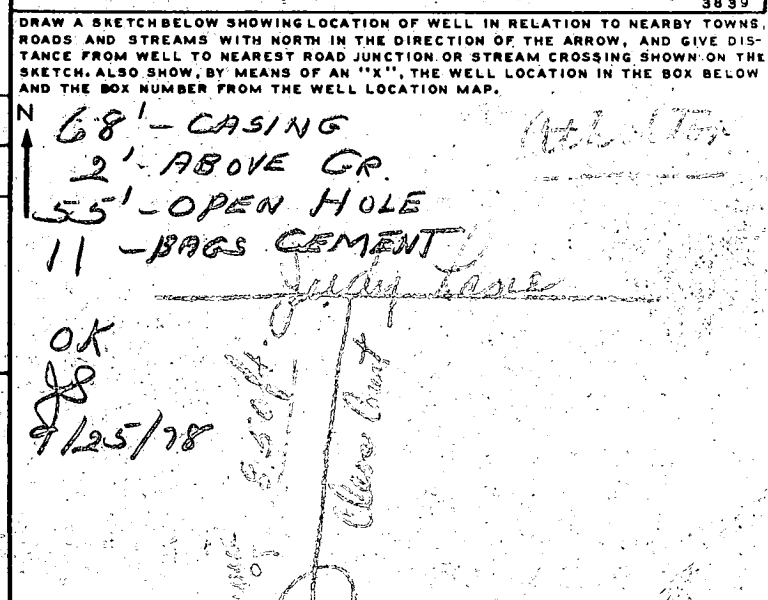 3839
DRAW A SKETCH BELOW SHOWING LOCATION OF WELL IN RELATION TO NEARBY TOWNS,
ROADS AND STREAMS WITH NORTH IN THE DIRECTION OF THE ARROW, AND GIVE DIS-
TANCE FROM WELL TO NEAREST ROAD JUNCTION OR STREAM CROSSING SHOWN ON THE
SKETCH. ALSO SHOW, BY MEANS OF AN "X", THE WELL LOCATION IN THE BOX BELOW
AND THE BOX NUMBER FROM THE WELL LOCATION MAP.
N
68' - CASING
2' - ABOVE GR.
55' - OPEN HOLE
11 - BAGS CEMENT
Atholton
Judy Lane
OK
JS
9/25/78
Court